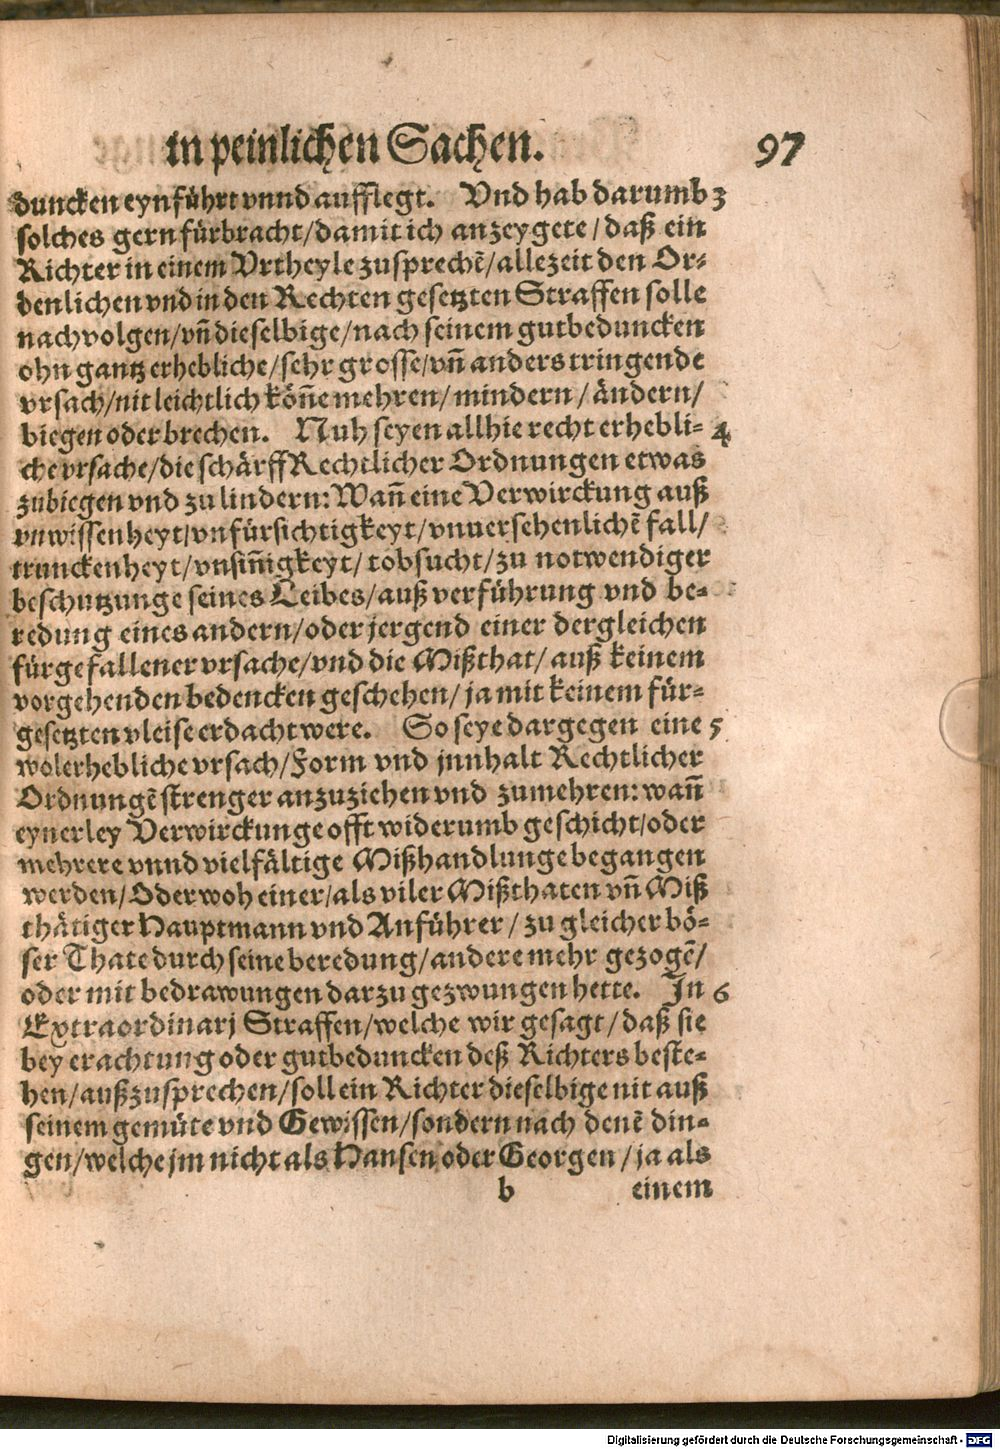 in peinlichen Sachen. 97
duncken eynführt vnnd aufflegt. Vnd hab darumb 3
solches gern fürbracht/damit ich anzeygete/daß ein
Richter in einem Vrtheyle zusprechē/allezeit den Or⸗
denlichen vnd in den Rechten gesetzten Straffen solle
nachvolgen/vñ dieselbige/nach seinem gutbeduncken
ohn gantz erhebliche/sehr grosse/vñ anders tringende
vrsach/nit leichtlich köñe mehren/mindern/ändern/
biegen oder brechen. Nuh seyen allhie recht erhebli⸗ 4
che vrsache/die schärff Rechtlicher Ordnungen etwas
zubiegen vnd zu lindern: Wañ eine Verwirckung auß
vnwissenheyt/vnfürsichtigkeyt/vnuersehenlichē fall/
trunckenheyt/vnsiñigkeyt/tobsucht/zu notwendiger
beschutzunge seines Leibes/auß verführung vnd be⸗
redung eines andern/oder jergend einer dergleichen
fürgefallener vrsache/vnd die Mißthat/auß keinem
vorgehenden bedencken geschehen/ja mit keinem für⸗
gesetzten vleise erdacht were. So seye dargegen eine 5
wolerhebliche vrsach/Form vnd jnnhalt Rechtlicher
Ordnungē strenger anzuziehen vnd zumehren: wañ
eynerley Verwirckunge offt widerumb geschicht/oder
mehrere vnnd vielfältige Mißhandlunge begangen
werden/Oder woh einer/als viler Mißthaten vñ Miß
thätiger Hauptmann vnd Anführer/zu gleicher bö⸗
ser Thate durch seine beredung/andere mehr gezogē/
oder mit bedrawungen darzu gezwungen hette. In 6
Extraordinarj Straffen/welche wir gesagt/daß sie
bey erachtung oder gutbeduncken deß Richters beste⸗
hen/außzusprechen/soll ein Richter dieselbige nit auß
seinem gemüte vnd Gewissen/sondern nach denē din⸗
gen/welche jm nicht als Hansen oder Georgen/ja als
b einem
Digitalisierung gefördert durch die Deutsche Forschungsgemeinschaft - DFG